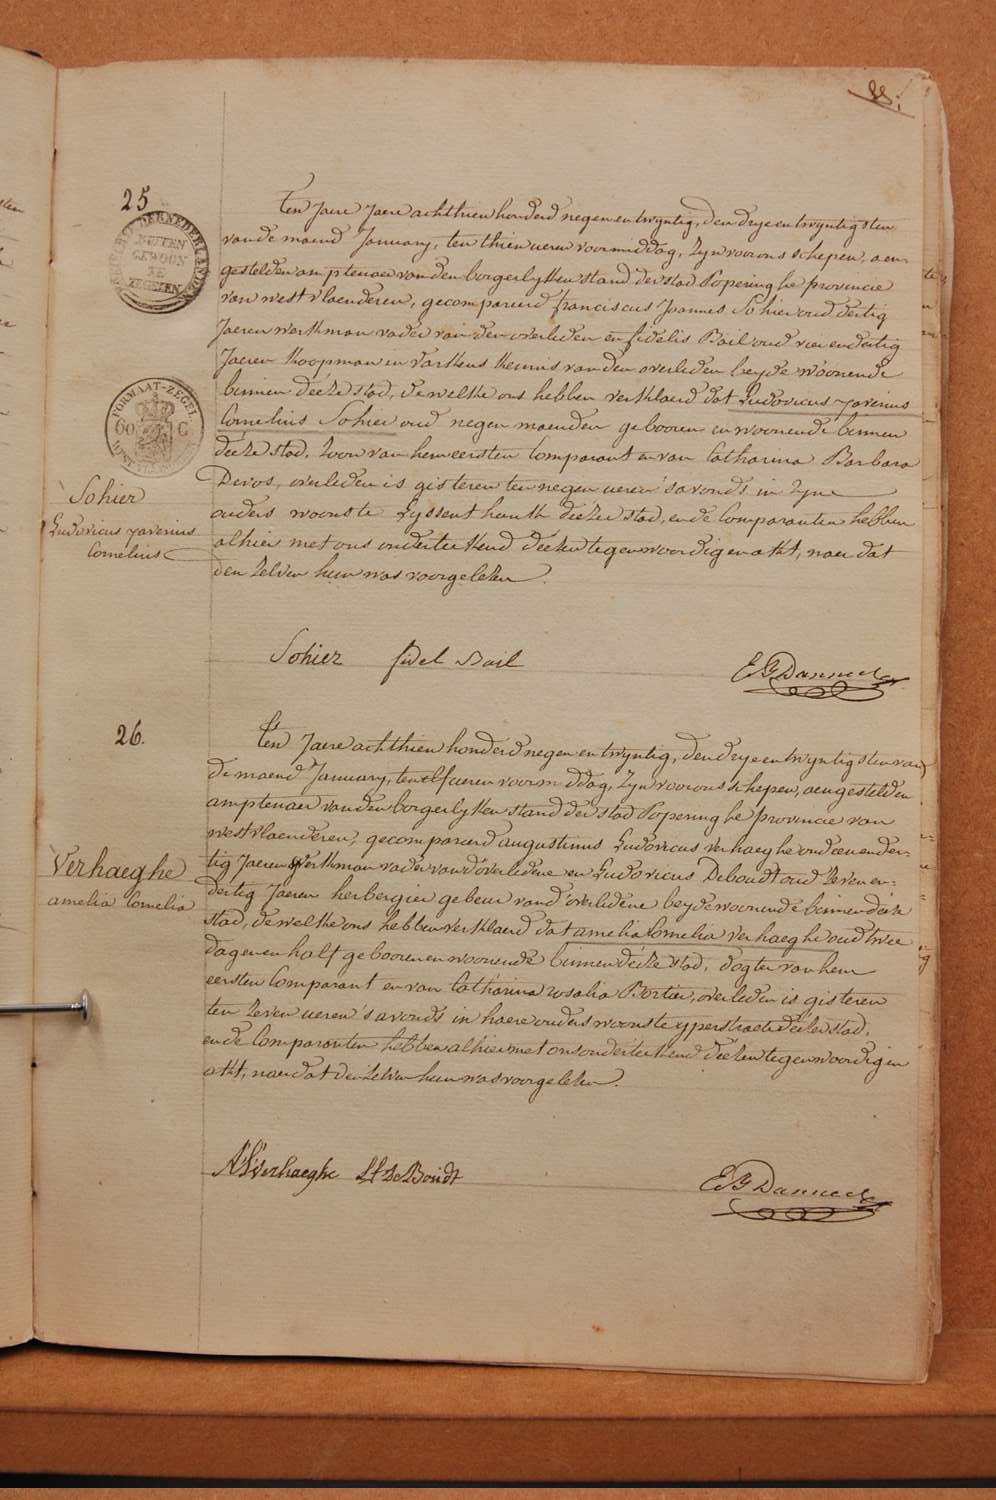 25
BUITEN
GEWOON
ZEGELEN
FORMAAT-ZEGEL
60 C
Sohier
Ludovicus xaverius
Cornelius
Ten Jaere Jaere achthien honderd negen en twyntig, den drye en twyntigsten
van de maend January, ten thien ueren voormiddag, Zyn voor ons schepen, aen-
gestelden amptenaer van den borgerlyken stand der stad Poperinghe provincie
van westvlaenderen, gecompareerd franciscus Joannes Sohier oud dertig
Jaeren werkman vader van den overleden en fidelis Bail oud vier en dertig
Jaeren Koopman in varkens Kennis van den overleden beyde woonende
binnen deéze stad, de welke ons hebben verklaerd dat Ludovicus xaverius
Cornelius Sohier oud negen maenden gebooren en woonende binnen
deéze stad, zoon van hem eersten Comparant en van Catharina Barbara
Devos, overleden is gisteren ten negen ueren 's avonds in zyne
ouders woonste Lyssenthoek deéze stad, en de Comparanten hebben
alhier met ons onderteekend deezen tegenwoordigen akt, naer dat
den zelven hun was voorgelezen.
Sohier fidel Bail
26.
Verhaeghe
amelia Cornelia
Ten Jaere achthien honderd negen en twyntig, den drye en twyntigsten van
de maend January, ten elf ueren voormiddag, Zyn voor ons schepen, aengestelden
amptenaer van den borgerlyken stand der stad Poperinghe provincie van
westvlaenderen, gecompareerd augustinus Ludovicus verhaeghe oud een en der-
tig Jaeren werkman vader van d'overledene en Ludovicus Deboudt oud zeven en-
dertig Jaeren herbergier gebeur van d'overledene beyde woonende binnen deéze
stad, de welke ons hebben verklaerd dat amelia Cornelia verhaeghe oud twee
dagen en half gebooren en woonende binnen deéze stad, dogter van hem
eersten Comparant en van Catharina rosalia Bertier, overleden is gisteren
ten zeven ueren 's avonds in haere ouders woonste yperstraete deéze stad,
en de Comparanten hebben alhier met ons onderteekend deézen tegenwoordigen
akt, naer dat den zelven hun was voorgelezen.
A L Verhaeghe